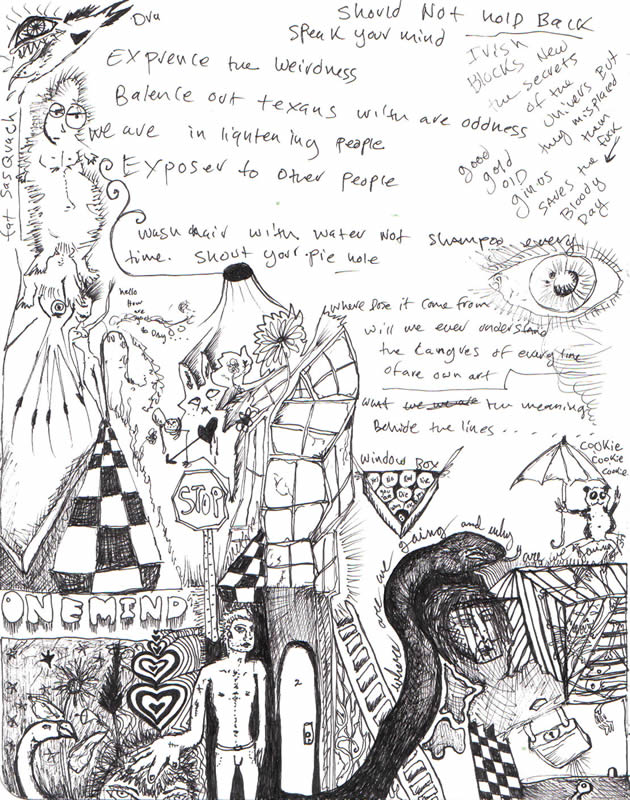 Dra
Should Not hold Back
speak your mind
Exprence the weirdness
Balence out texans with are oddness
we are in lightening people
Exposer to other people
Irish
Blocks New
the secrets
of the
univers But
they misplaced
them
good
gold
old
ginus
saves the fuck
Bloody
Day
fat sasquach
wash hair with water Not shampoo every
time. Shout your pie hole
hello
How
are
you
to Day
where dose it come from
will we ever understand
the tangues of every time
of are own art
want we we are the meaning
Behide the lines ....
window Box
Die
STOP
cookie
cookie
cookie
where are we going and why are we
ONE MIND
2